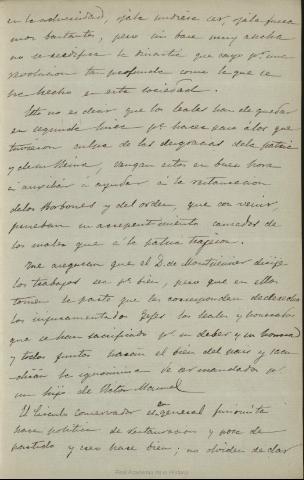 en la adversidad, ojala pudiera ser, ojala fuera
mos bastantes, pero sin base muy ancha
no se reedifica la dinastia que cayo pr. una
revolucion tan profunda como la que se
ha hecho en esta sociedad.
Esto no es decir que los leales han de quedar
en segunda linea pa. hacer paso á los que
tuvieron culpa de las desgracias de la patria
y de su Reina, vengan estos en buen hora
á auxiliar á ayudar á la restauracion
de los Borbones y del orden, que con venir,
prueban su arrepentimiento causados de
los males que á la patria trajeron.
Me aseguran que el D. de Montpensier dirige
los trabajos sea pr. bien, pero que en ellos
tomen la parte que les corresponden de derecho
los Gefes los leales y honrados
que se han sacrificado pr. su deber y su honra
y todos juntos hacen el bien del pais y
la ignominia de ser mandados pr.
un hijo de Victor Manuel
El Circulo conservador en general
hace politica de restauracion y no de
partido y eso hace bien; no olviden de dar
Real Academia de la Historia